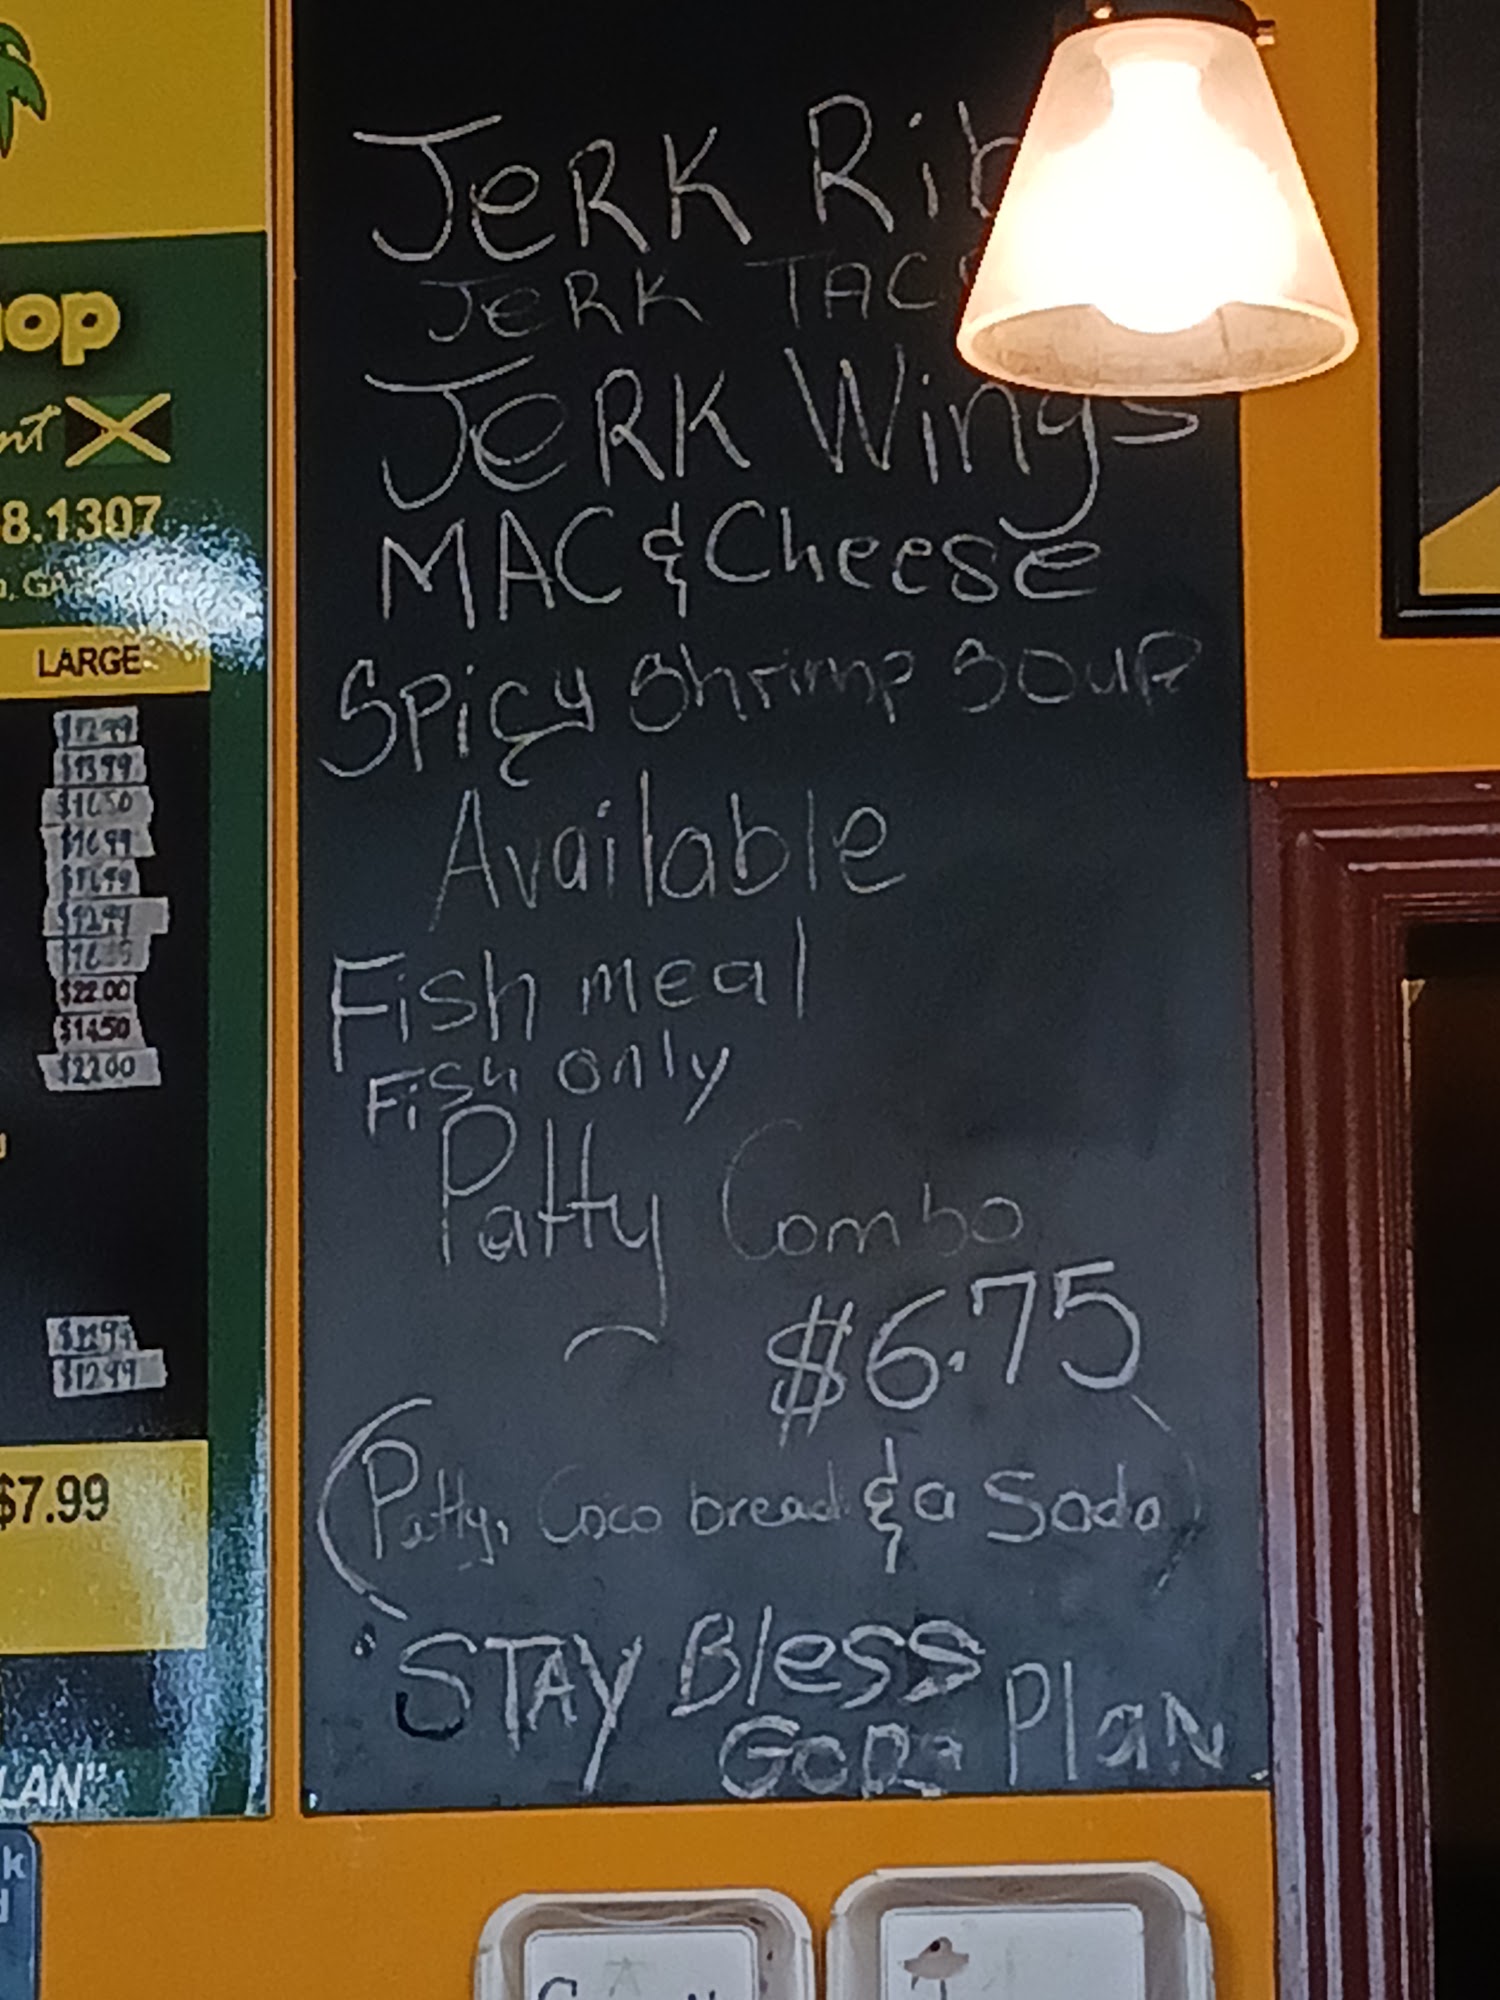 JERK Rib
JERK TAC
JERK Wings
MAC & Cheese
Spicy Shrimp Soup
Available
Fish meal
Fish only
Patty Combo
$6.75
(Patty, Coco bread & a Soda)
"STAY Bless
GODs Plan
op
nt
8.1307
, GA
LARGE
$12.99
$13.99
$16.50
$16.99
$12.99
$22.00
$14.50
$22.00
$12.99
$7.99
LAN"
k
d